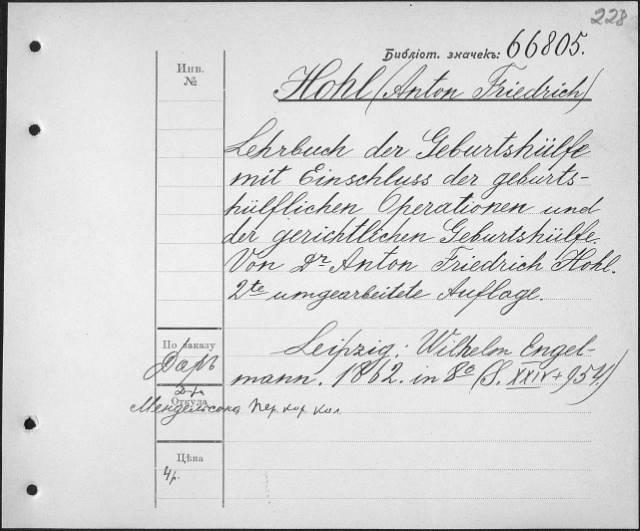 228
Библіот. значекъ: 66805.
Инв.
№
Hohl (Anton Friedrich)
Lehrbuch der Geburtshülfe
mit Einschluss der geburts-
hülflichen Operationen und
der gerichtlichen Geburtshülfe.
Von Dr Anton Friedrich Hohl.
2te umgearbeitete Auflage.
Leipzig: Wilhelm Engel-
mann. 1862. in 8o (S. XXIV+954.)
По заказу
Даръ
Д-ра
Откуда
Мендельсона пер. кор. кал.
Цѣна
4р.